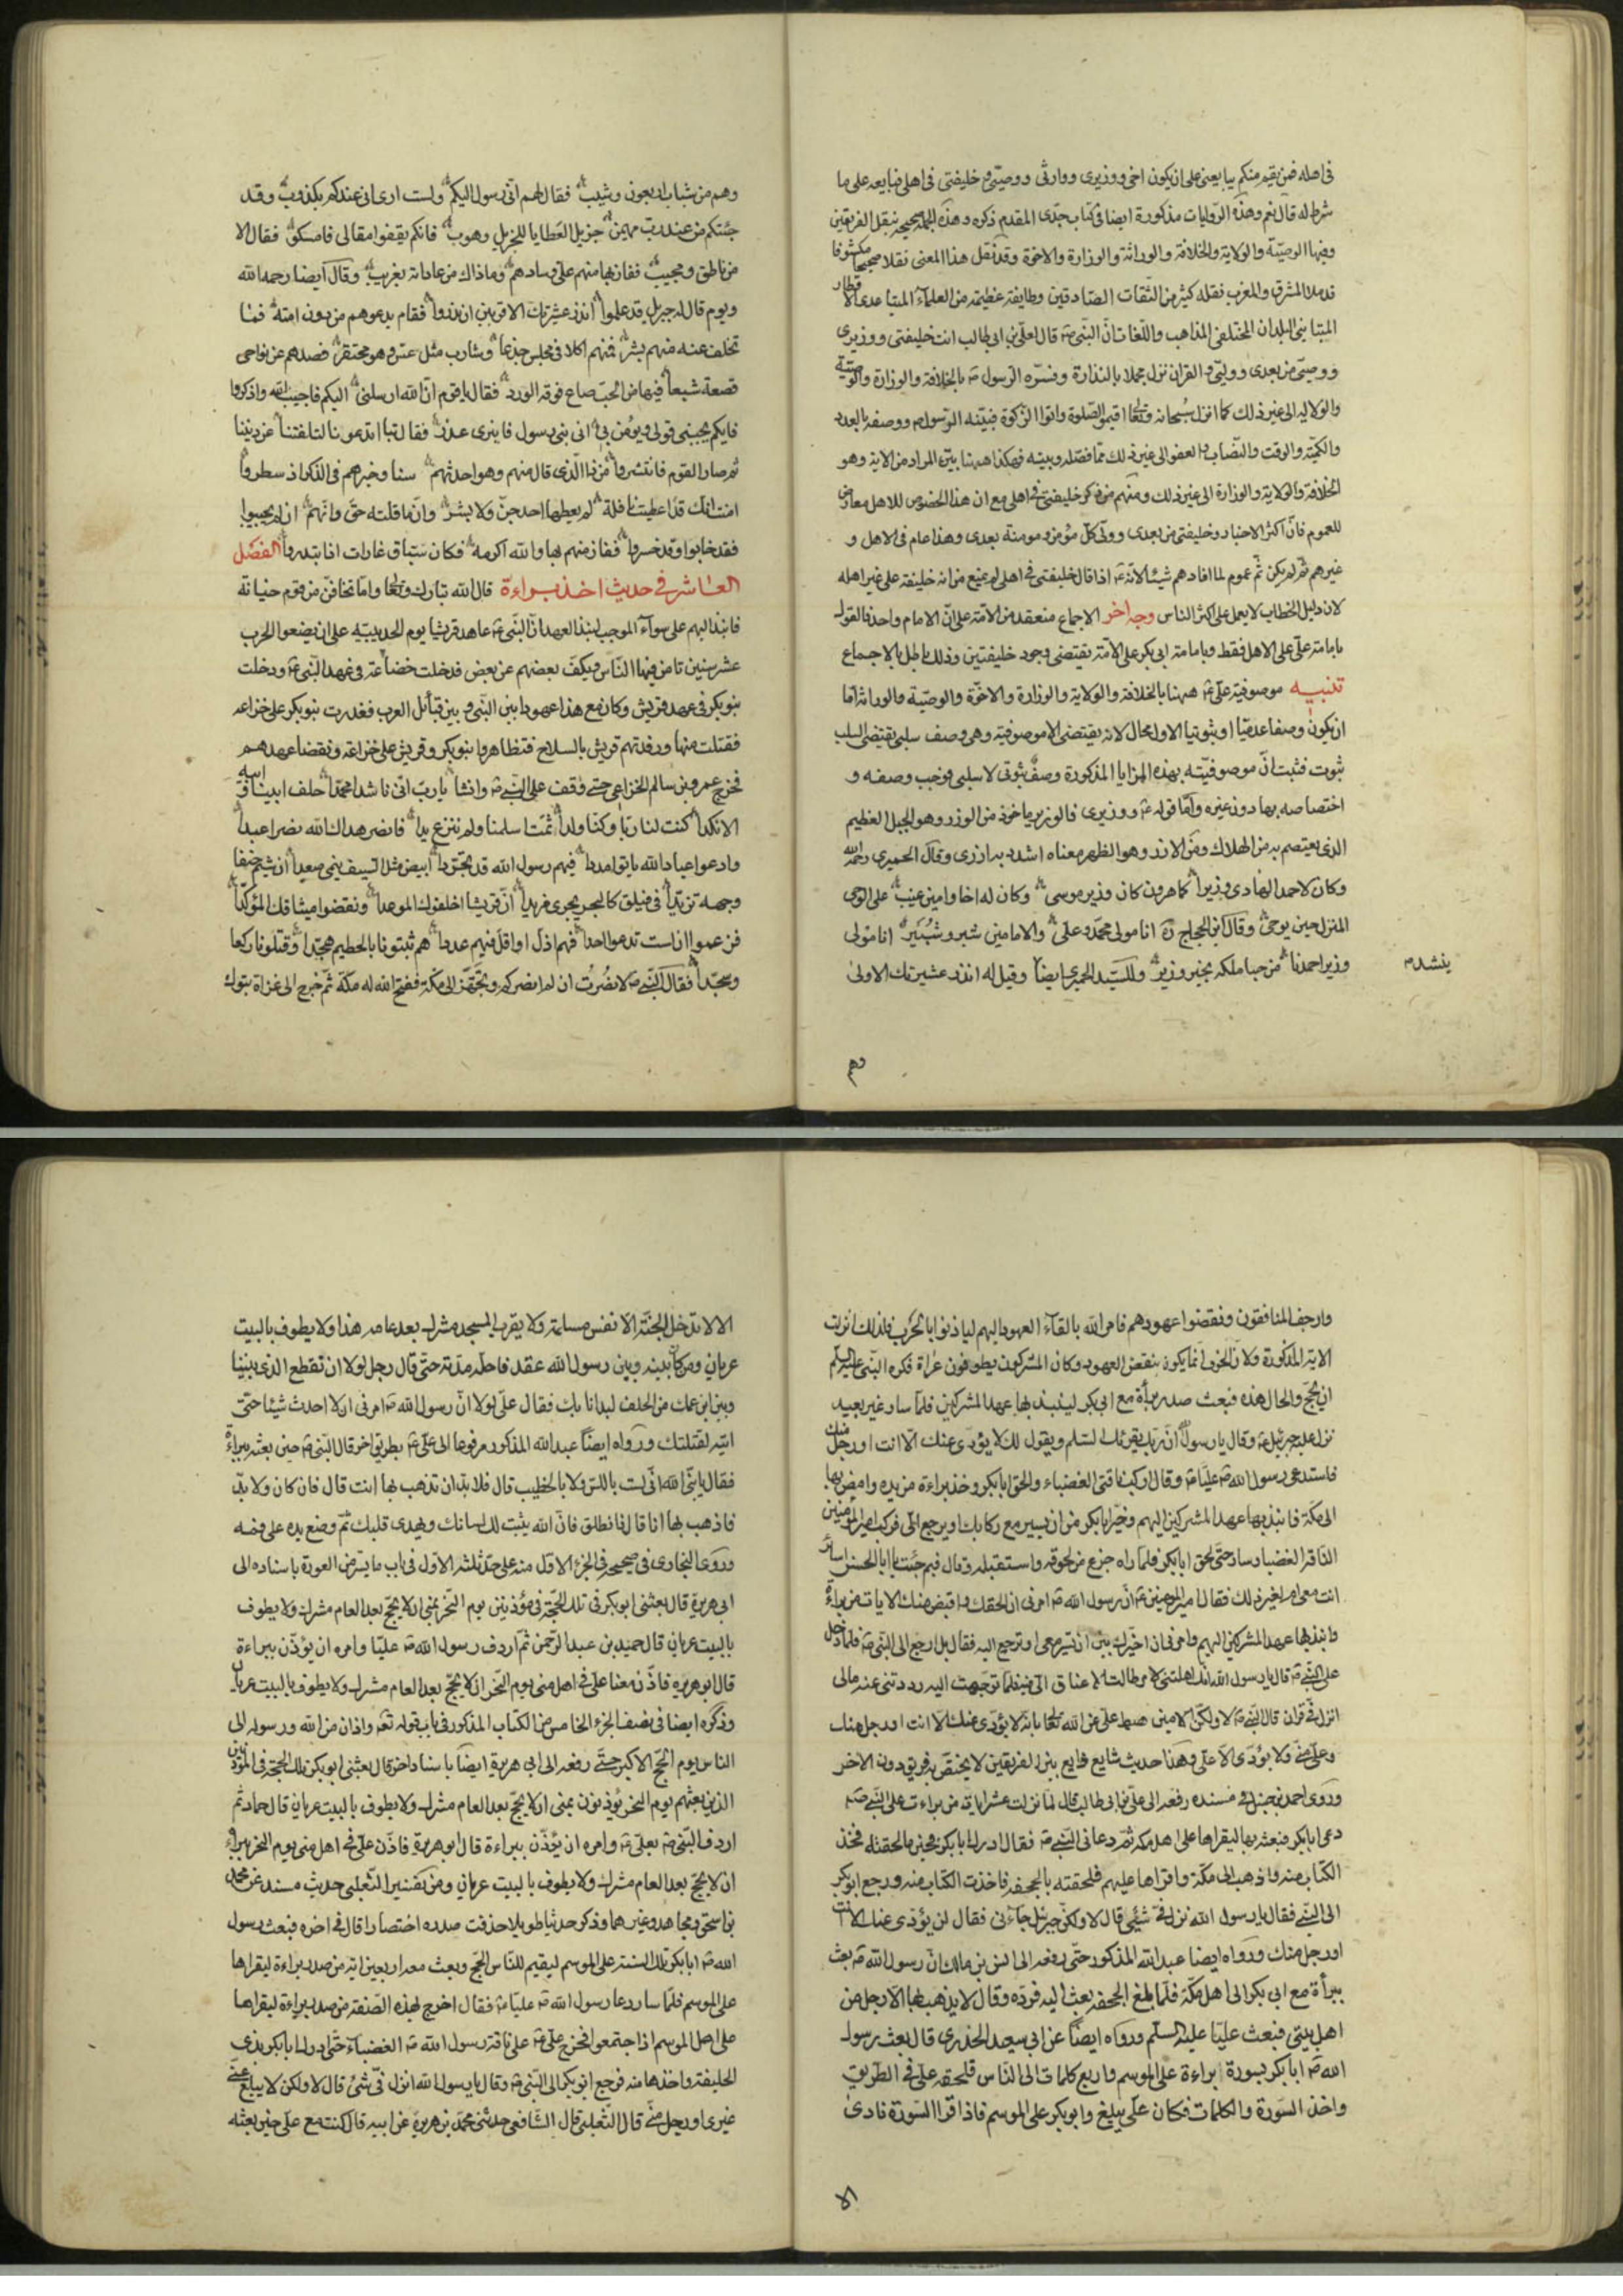 في اهله فمن يقيم منكم يبايعني على ان يكون اخي ووزيري ووارثي ووصيي وخليفتي في اهلي فبايعه على ما
شرط له قال نعم وهذه الروايات مذكورة ايضا في كتاب جدي المقدم ذكره وهذه الجملة صحيحة بنقل الفريقين
وفيها الوصية والولاية والخلافة والوراثة والوزارة والاخوة وقد نقل هذا المعنى نقلا صحيحا مكشوفا
قد ملا المشرق والمغرب نقله كثير من الثقات الصادقين وطايفة عظيمة من العلماء المتباعدي الاقطار
المتبايني البلدان المختلفي المذاهب واللغات ان النبي ص قال لعلي بن ابي طالب انت خليفتي ووزيري
ووصيي من بعدي ووليي والقران نزل مجملا بالنذارة وفسره الرسول ص بالخلافة والوزارة والوصية
والولاية الى غير ذلك كما انزل سبحانه وتعالى اقيموا الصلوة واتوا الزكوة فبينه الرسول ص ووصفه بالعدد
والكمية والوقت والنصاب والعفو الى غير ذلك مما فصله وبينه فهكذا ههنا بين المراد من الاية وهو
الخلافة والولاية والوزارة الى غير ذلك ومنهم من ذكر خليفتي في اهلي مع ان هذا الخصوص للاهل معارض
للعموم فان اكثر الاخبار وخليفتي من بعدي وولي كل مؤمن ومومنة بعدي وهذا عام في الاهل و
غيرهم ثم لو لم يكن ثم عموم لما افادهم شيئا لانه ع اذا قال خليفتي في اهلي لم يمنع من انه خليفة على غير اهله
لان دليل الخطاب لا يعمل على اكثر الناس وجه اخر الاجماع منعقد من الامة على ان الامام واحد فالقول
بامامة علي على الاهل فقط وبامامة ابي بكر على الامة يقتضي وجود خليفتين وذلك باطل بالاجماع
تنبيه موصوفية علي ع ههنا بالخلافة والولاية والوزارة والاخوة والوصية والوراثة اما
ان يكون وصفا عدميا او ثبوتيا الاول محال لانه يقتضي الاموصوفية وهي وصف سلبي يقتضي السلب
ثبوت فثبت ان موصوفيته بهذه المزايا المذكورة وصف ثبوتي لا سلبي فوجب وصفه و
اختصاصه بها دون غيره واما قوله ع ووزيري فالوزير ماخوذ من الوزر وهو الجبل العظيم
الذي يعتصم به من الهلاك ومن الازر وهو الظهر معناه اشدد به ازري وقال الحميري رحمه الله
وكان لاحمد الهادي وزيرا كما هرون كان وزير موسى وكان له اخا وامين غيب على الوحي
المنزل حين يوحى وقال ابن الحجاج ره انا مولى محمد وعلي والامامين شبر وشبير انا مولى
وزير احمد من حبا ملكه بخير وزير وللسيد الحميري ايضا وقيل له انذر عشيرتك الاولى
ينشد م
وهم
وهم من شباب اربعون وشيب فقال لهم اني رسول اليكم ولست اراني عندكم بكذوب وقد
جئتكم من عند رب مهيمن جزيل العطايا للجزيل وهوب فايكم يقفوا مقالي فامسكوا فقال الا
من ناطق ومجيب ففاز بها منهم علي وسادهم وما ذاك من عاداته بغريب وقال ايضا رحمه الله
ويوم قال له جبريل قد علموا انذر عشيرتك الاقربين ان نذروا فقام يدعوهم من دون امته فما
تخلف عنه منهم بشر فمنهم اكلا في مجلس جذعا وشارب مثل عس وهو محتقر فصدهم عن نواحي
قصعة شبعا فيها من الحب صاع فوقه الورد فقال يا قوم ان الله ارسلني اليكم فاجيبوا الله واذكروا
فايكم يجبني قولي ويؤمن بي اني نبي رسول فانبرى عذر فقال تبا اتدعونا لتلفتنا عن ديننا
ثم صار القوم فانتشروا من ذا الذي قال منهم وهو احدثهم سنا وخيرهم في الذكر اذ سطروا
امنت انك قد اعطيت نافلة لم يعطها احد جن ولا بشر وان ما قلته حق وانهم ان لم يجيبوا
فقد خابوا وقد خسروا ففاز منهم بها والله اكرمه فكان سباق غارات اذا ابتدروا الفصل
العاشر في حديث اخذ براءة قال الله تبارك وتعالى واما تخافن من قوم خيانة
فانبذ اليهم على سواء الموجب لنبذ العهد ان النبي ع عاهد قريشا يوم الحديبية على ان يضعوا الحرب
عشر سنين تامن فيها الناس ويكف بعضهم عن بعض فدخلت خضاعة في عهد النبي ع ودخلت
بنو بكر في عهد قريش وكان مع هذا عهود ا بين النبي وبين قبائل العرب فغدرت بنو بكر على خزاعة
فقتلت منها ورفدتهم قريش بالسلاح فتظاهروا بنو بكر وقريش على خزاعة ونقضا عهدهم
فخرج عمرو بن سالم الخزاعي حتى وقف على النبي ص وانشا يا رب اني ناشد محمدا حلف ابينا وابيه
الاتلدا كنت لنا ربا وكنا ولدا ثمت اسلمنا ولم ننزع يدا فانصر هداك الله نصرا عبدا
وادعوا عباد الله ياتوا مددا فيهم رسول الله قد تجردا ابيض مثل السيف ينمي صعيدا ان شيم خسفا
وجهه تربدا في فيلق كالبحر يجري مزبدا ان قريشا اخلفوك الموعدا ونقضوا ميثاقك المؤكدا
فزعموا ان لست تدعوا احدا فهم اذل واقل منهم عددا هم ثبتونا بالحطيم هجدا وقتلونا ركعا
وسجدا فقال النبي ص لا نصرت ان لم انصركم وتجهز الى مكة ففتح الله له مكة ثم خرج الى غزاة تبوك
وارجف المنافقون ونقضوا عهودهم فامر الله بالقاء العهود اليهم ليأذنوا بالحرب فلذلك نزلت
الاية المذكورة ولان الخزي انما يكون بنقض العهود وكان المشركون يطوفون عراة فكره النبي عليه السلم
ان يحج والحال هذه فبعث صدر براءة مع ابي بكر لينبذ بها عهد المشركين فلما سار غير بعيد
نزل عليه جبرئيل ع وقال يا رسول الله ان ربك يقرئك السلم ويقول لك لا يؤدي عنك الا انت او رجل منك
فاستدعى رسول الله ص عليا ع وقال اركب ناقتي العضباء والحق ابا بكر وخذ براءة من يده وامض بها
الى مكة فانبذ بها عهد المشركين اليهم وخير ابا بكر من ان يسير مع ركابك ويرجع الي فركب امير المؤمنين
الناقة العضباء وسار حتى لحق ابا بكر فلما راه جزع من لحوقه واستقبله وقال فيم جئت يا ابا الحسن اسائر
انت معي ام لغير ذلك فقال امير المؤمنين ع ان رسول الله ص امرني ان الحقك واقبض منك الايات من براءة
وانبذ بها عهد المشركين اليهم وامرني ان اخيرك بين ان تسير معي او ترجع اليه فقال بل ارجع الى النبي ص فلما دخل
على النبي ص قال يا رسول الله انك اهلتني لامر طالت الاعناق الي فيه فلما توجهت اليه رددتني عنه مالي
انزل في قران قال النبي ص لا ولكن الامين هبط علي عن الله تعالى بانه لا يؤدي عنك الا انت او رجل منك
وعلي مني ولا يؤدي الا علي وهذا حديث شايع ذايع بين الفريقين لا يختص به فريق دون الاخر
وروى احمد بن حنبل في مسنده رفعه الى علي بن ابي طالب قال لما نزلت عشر ايات من براءة على النبي ص
دعى ابا بكر فبعثه بها ليقراها على اهل مكة ثم دعاني النبي ص فقال ادرك ابا بكر فحيث ما لحقته فخذ
الكتاب منه واذهب الى مكة واقراها عليهم فلحقته بالجحفة فاخذت الكتاب منه ورجع ابو بكر
الى النبي فقال يا رسول الله نزل في شيء قال لا ولكن جبرئيل جاءني فقال لن يؤدي عنك الا انت
او رجل منك ورواه ايضا عبد الله المذكور حتى رفعه الى انس بن مالك ان رسول الله ص بعث
ببراءة مع ابي بكر الى اهل مكة فلما بلغ الجحفة بعث اليه فرده وقال لا يذهب بها الا رجل من
اهل بيتي فبعث عليا عليه السلم ورواه ايضا عن ابي سعيد الخدري قال بعث رسول
الله ص ابا بكر بسورة براءة على الموسم واربع كلمات الى الناس فلحقه علي في الطريق
واخذ السورة والكلمات فكان علي يبلغ وابو بكر على الموسم فاذا قرا السورة نادى
الا
الا لا تدخل الجنة الا نفس مسلمة ولا يقرب المسجد مشرك بعد عامه هذا ولا يطوف بالبيت
عريان ومن كان بينه وبين رسول الله عقد فاجله مدته حتى قال رجل لولا ان نقطع الذي بيننا
وبين ابن عمك من الحلف لبدانا بك فقال علي لولا ان رسول الله ص امرني ان لا احدث شيئا حتى
اتيه لقتلتك ورواه ايضا عبد الله المذكور مرفوعا الى علي ع بطريق اخر قال النبي ص حين بعثه ببراءة
فقال يا نبي الله اني لست باللسن ولا بالخطيب قال فلا بد ان تذهب بها انت قال فان كان ولا بد
فاذهب بها انا قال فانطلق فان الله يثبت لك لسانك ويهدي قلبك ثم وضع يده على فمه
وروى البخاري في صحيحه في الجزء الاول منه على حد ثلثه الاول في باب ما يستر من العورة باسناده الى
ابي هريرة قال بعثني ابو بكر في تلك الحجة في مؤذنين يوم النحر بمنى الا يحج بعد العام مشرك ولا يطوف
بالبيت عريان قال حميد بن عبد الرحمن ثم اردف رسول الله ص عليا وامره ان يؤذن ببراءة
قال ابو هريرة فاذن معنا علي في اهل منى يوم النحر ان لا يحج بعد العام مشرك ولا يطوف بالبيت عريان
وذكره ايضا في نصف الجزء الخامس من الكتاب المذكور في باب قوله تعالى واذان من الله ورسوله الى
الناس يوم الحج الاكبر حتى رفعه الى ابي هريرة ايضا باسناد اخر قال بعثني ابو بكر تلك الحجة في المؤذنين
الذين بعثهم يوم النحر يؤذنون بمنى ان لا يحج بعد العام مشرك ولا يطوف بالبيت عريان قال حماد ثم
اردف النبي ص بعلي ع وامره ان يؤذن ببراءة قال ابو هريرة فاذن علي في اهل منى يوم النحر ببراءة
ان لا يحج بعد العام مشرك ولا يطوف بالبيت عريان ومن تفسير الثعلبي حديث مسند عن محمد
بن اسحق ومجاهد وغيرهما وذكر حديثا طويلا حذفت صدره اختصارا قال في اخره فبعث رسول
الله ص ابا بكر تلك السنة على الموسم ليقيم للناس الحج وبعث معه اربعين اية من صدر براءة ليقراها
على الموسم فلما سار دعا رسول الله ص عليا ع فقال اخرج بهذه القصة من صدر براءة ليقراها
على اهل الموسم اذا اجتمعوا فخرج علي ع على ناقة رسول الله ص العضباء حتى ادرك ابا بكر بذي
الحليفة واخذها منه فرجع ابو بكر الى النبي ص وقال يا رسول الله انزل في شيء قال لا ولكن لا يبلغ عني
غيري او رجل مني قال الثعلبي قال الشافعي حدثني محمد بن هريرة عن ابيه قال كنت مع علي حين بعثه